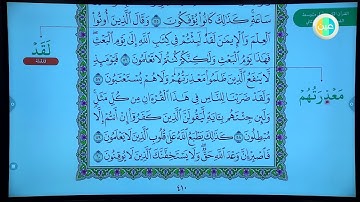 سَاعَةٍ كَذَٰلِكَ كَانُوا۟ يُؤْفَكُونَ ۝٥٥ وَقَالَ ٱلَّذِينَ أُوتُوا۟
ٱلْعِلْمَ وَٱلْإِيمَـٰنَ لَقَدْ لَبِثْتُمْ فِى كِتَـٰبِ ٱللَّهِ إِلَىٰ يَوْمِ ٱلْبَعْثِ
فَهَـٰذَا يَوْمُ ٱلْبَعْثِ وَلَـٰكِنَّكُمْ كُنتُمْ لَا تَعْلَمُونَ ۝٥٦ فَيَوْمَئِذٍ
لَّا يَنفَعُ ٱلَّذِينَ ظَلَمُوا۟ مَعْذِرَتُهُمْ وَلَا هُمْ يُسْتَعْتَبُونَ ۝٥٧
وَلَقَدْ ضَرَبْنَا لِلنَّاسِ فِى هَـٰذَا ٱلْقُرْءَانِ مِن كُلِّ مَثَلٍ
وَلَئِن جِئْتَهُم بِـَٔايَةٍ لَّيَقُولَنَّ ٱلَّذِينَ كَفَرُوٓا۟ إِنْ أَنتُمْ إِلَّا
مُبْطِلُونَ ۝٥٨ كَذَٰلِكَ يَطْبَعُ ٱللَّهُ عَلَىٰ قُلُوبِ ٱلَّذِينَ لَا يَعْلَمُونَ ۝٥٩
فَٱصْبِرْ إِنَّ وَعْدَ ٱللَّهِ حَقٌّ وَلَا يَسْتَخِفَّنَّكَ ٱلَّذِينَ لَا يُوقِنُونَ ۝٦٠
٤١٠
مَعْذِرَتُهُمْ
لَقَدْ
قلقلة